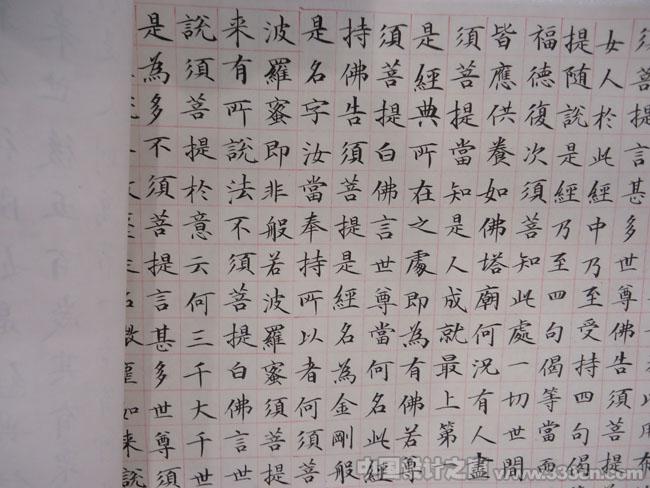 須菩提言甚多世尊佛告須菩提
女人於此經中乃至受持四句偈
提隨說是經乃至四句偈等當而
福德復次須菩知此處一切世間
皆應供養如佛塔廟何況有人盡
須菩提當知是人成就最上第一
是經典所在之處即為有佛若尊
須菩提白佛言世尊當何名此經
持佛告須菩提是經名為金剛般
是名字汝當奉持所以者何須菩
波羅蜜即非般若波羅蜜須菩提
来有所說法不須菩提白佛言世
說須菩提於意云何三千大千世
是為多不須菩提言甚多世尊須
如来說
www.333cn.com